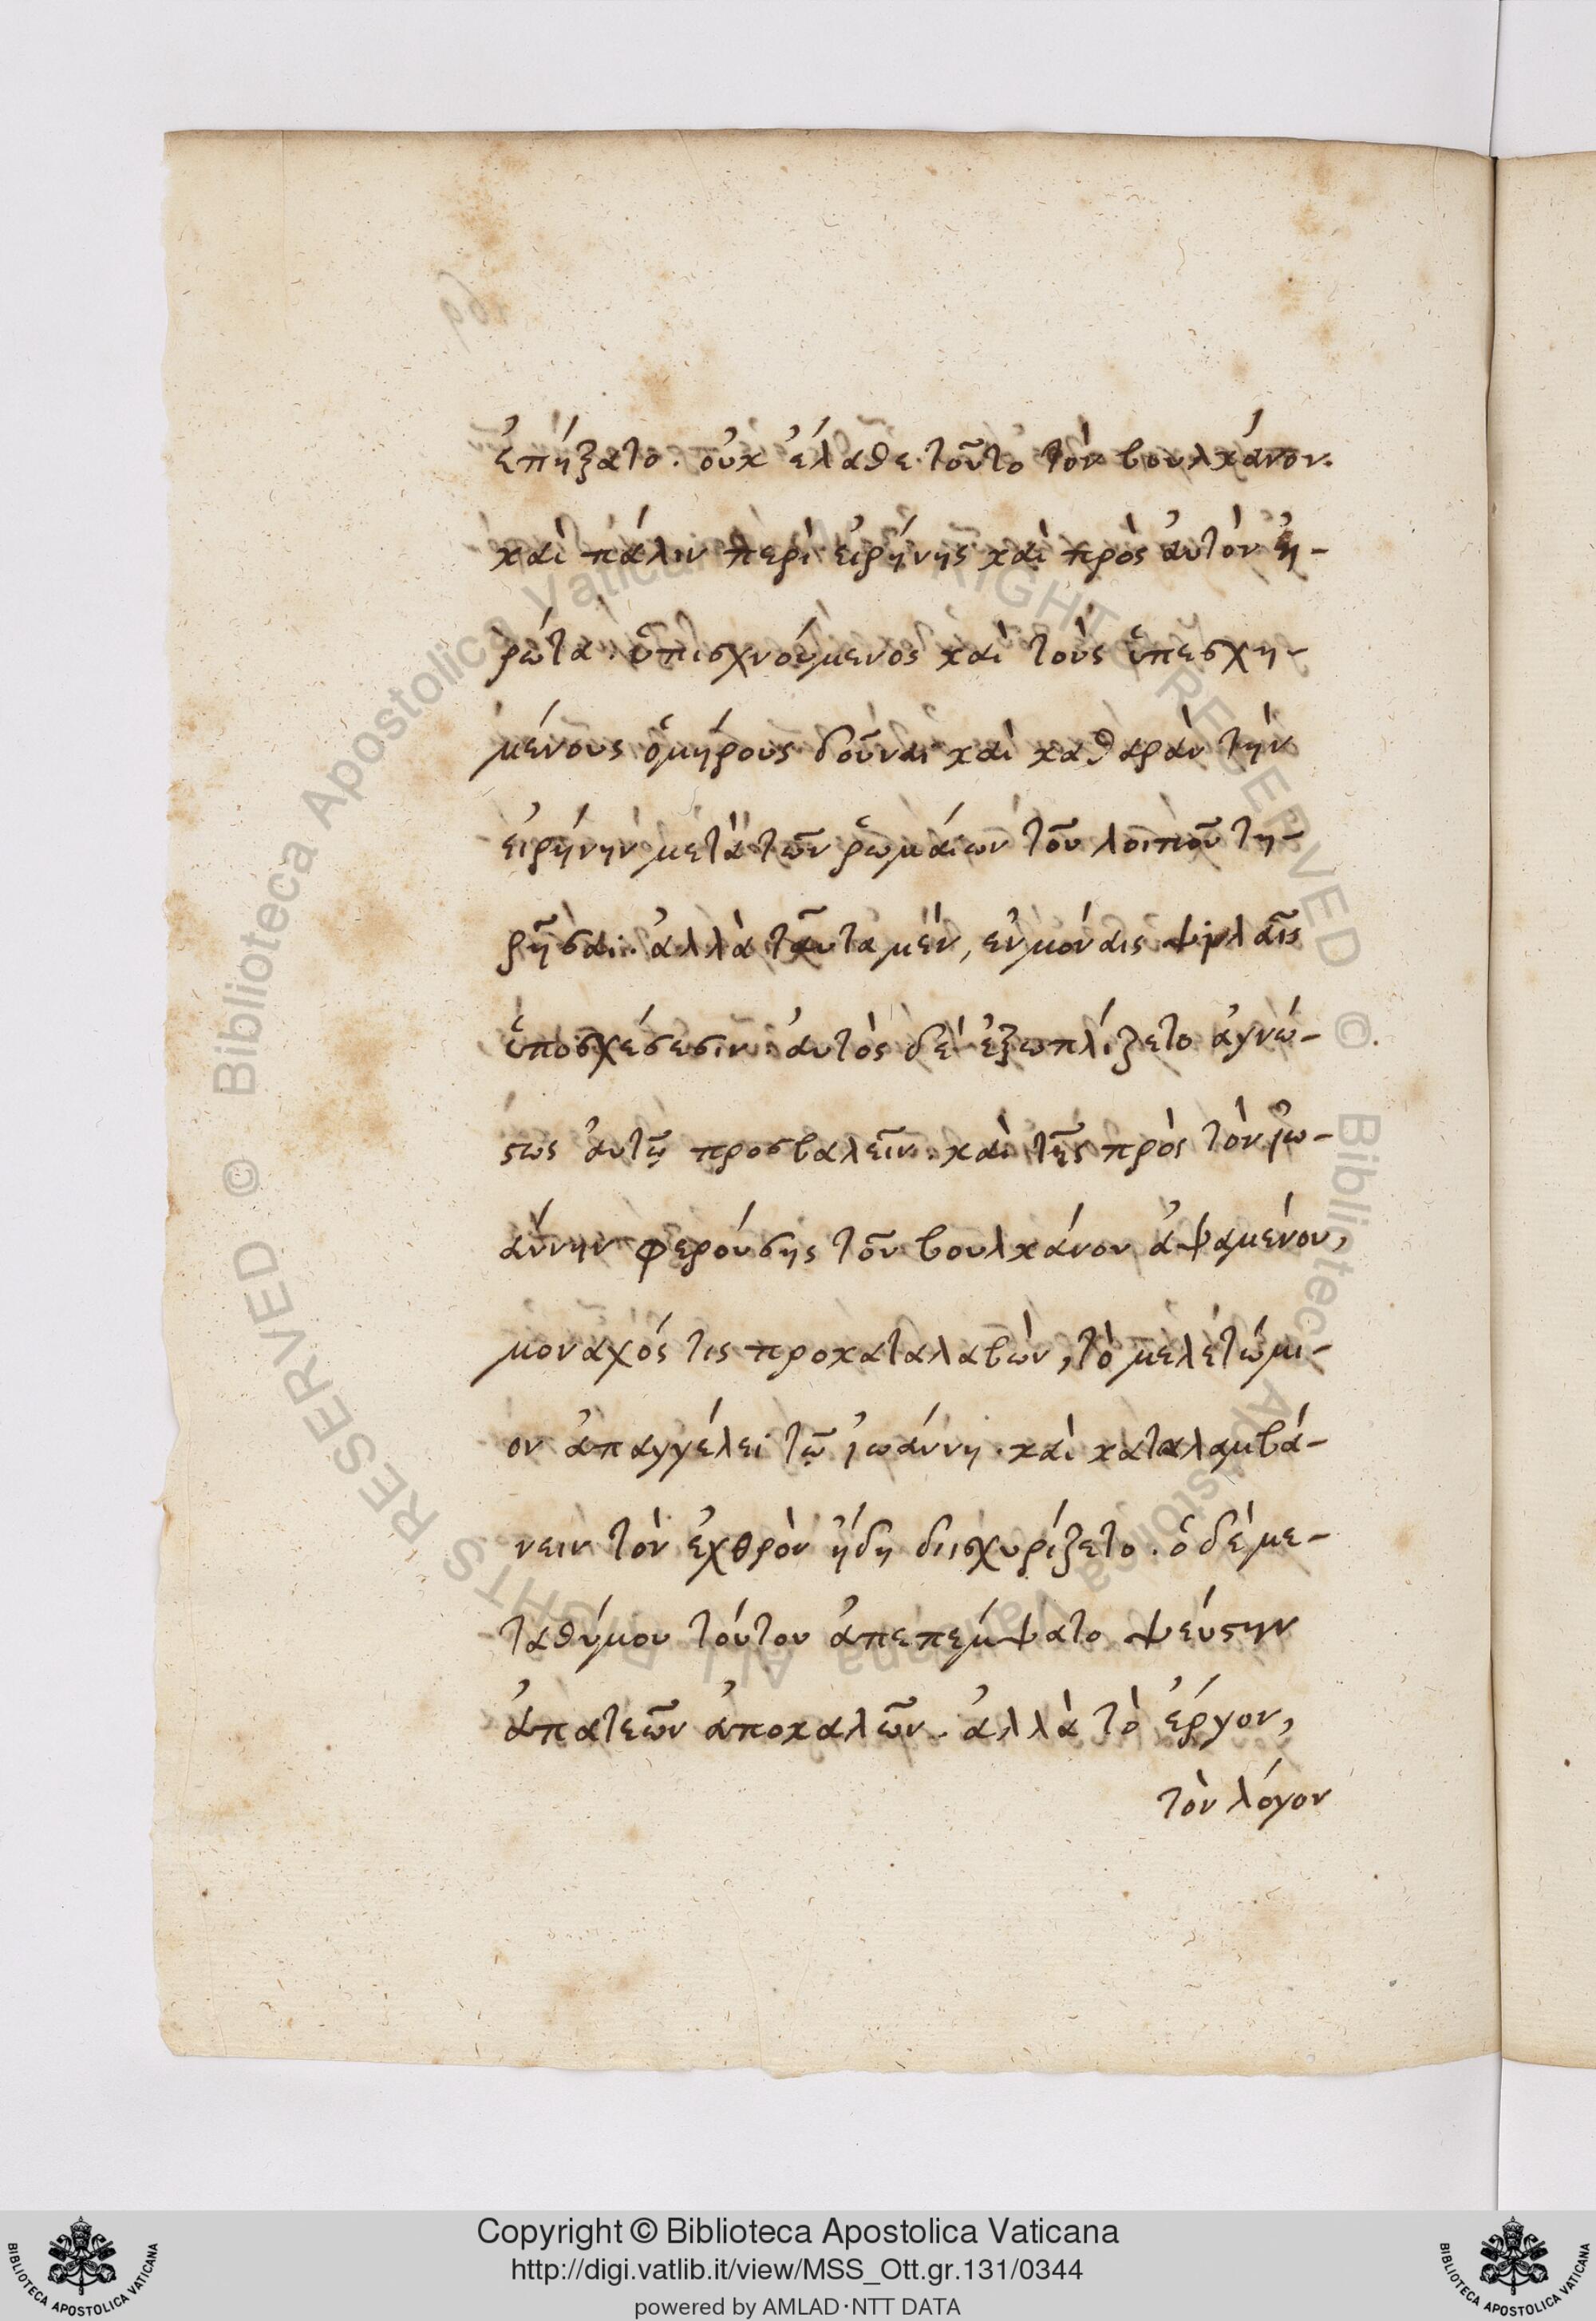 ἐπήξατο. οὐκ ἔλαθε τοῦτο τὸν βουλκάνον.
καὶ πάλιν περὶ εἰρήνης καὶ πρὸς ἀυτὸν ἠ-
ρώτα. ὑπισχνούμενος καὶ τοὺς ὑπεσχη-
μένους ὁμήρους δοῦναι καὶ καθαρὰν τὴν
εἰρήνην μετὰ τῶν ῥωμάιων τοῦ λοιποῦ τη-
ρῆσαι. ἀλλὰ ταῦτα μὲν, ἐν μόναις ψιλαῖς
ὑποσχέσεσιν. ἀυτὸς δὲ ἐξωπλίζετο ἀγνώ-
στως ἀυτῷ προσβαλεῖν. καὶ τῆς πρὸς τὸν ἰω-
άννην φερούσης τοῦ βουλκάνου ἁψαμένου,
μοναχός τις προκαταλαβὼν, τὸ μελετώμε-
ον ἀπαγγέλει τῷ ἰωάννη. καὶ καταλαμβά-
νειν τὸν ἐχθρὸν ἤδη διισχυρίζετο. ὁ δὲ με-
ταθύμου τούτου ἀπεπέμψατο ψεύστην
ἀπατεῶν ἀποκαλῶν. ἀλλὰ τὸ ἔργον,
τὸν λόγον
Copyright © Biblioteca Apostolica Vaticana
http://digi.vatlib.it/view/MSS_Ott.gr.131/0344
powered by AMLAD·NTT DATA